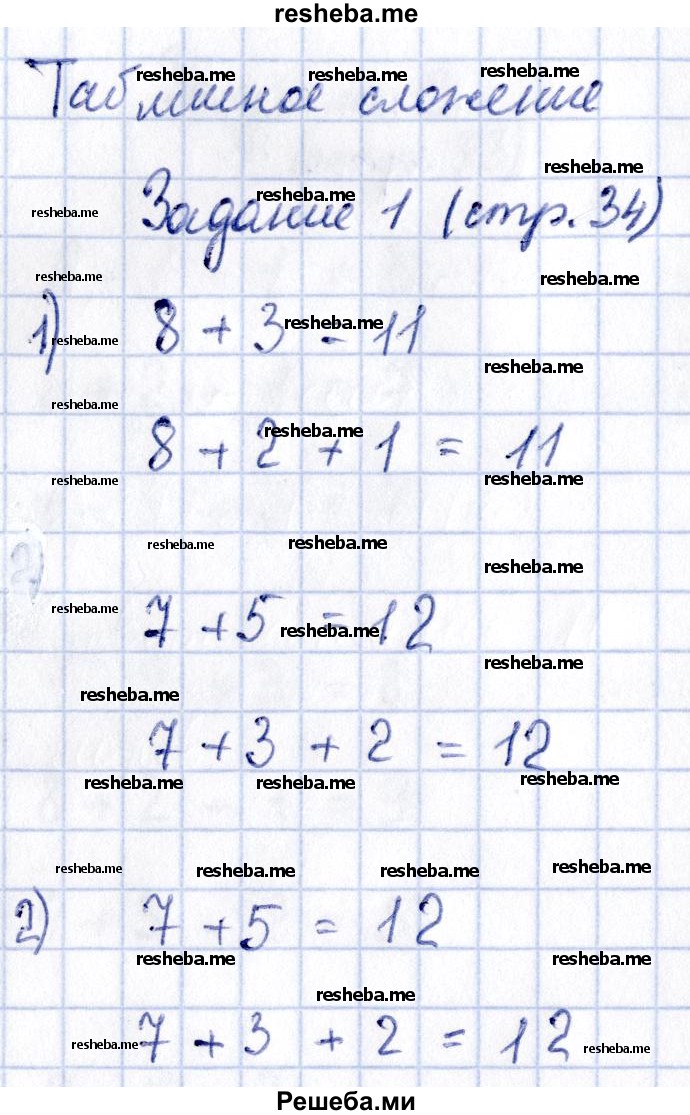 resheba.me
resheba.me resheba.me resheba.me
Табличное сложение
resheba.me
resheba.me resheba.me
Задание 1 (стр. 34)
resheba.me resheba.me
1) 8 + 3 = 11
resheba.me resheba.me
resheba.me
resheba.me resheba.me
8 + 2 + 1 = 11
resheba.me resheba.me
resheba.me resheba.me
resheba.me
resheba.me
7 + 5 = 12
resheba.me
resheba.me
resheba.me
7 + 3 + 2 = 12
resheba.me resheba.me resheba.me
resheba.me resheba.me resheba.me resheba.me
2) 7 + 5 = 12
resheba.me resheba.me
resheba.me
7 + 3 + 2 = 12
resheba.me resheba.me
Решеба.ми